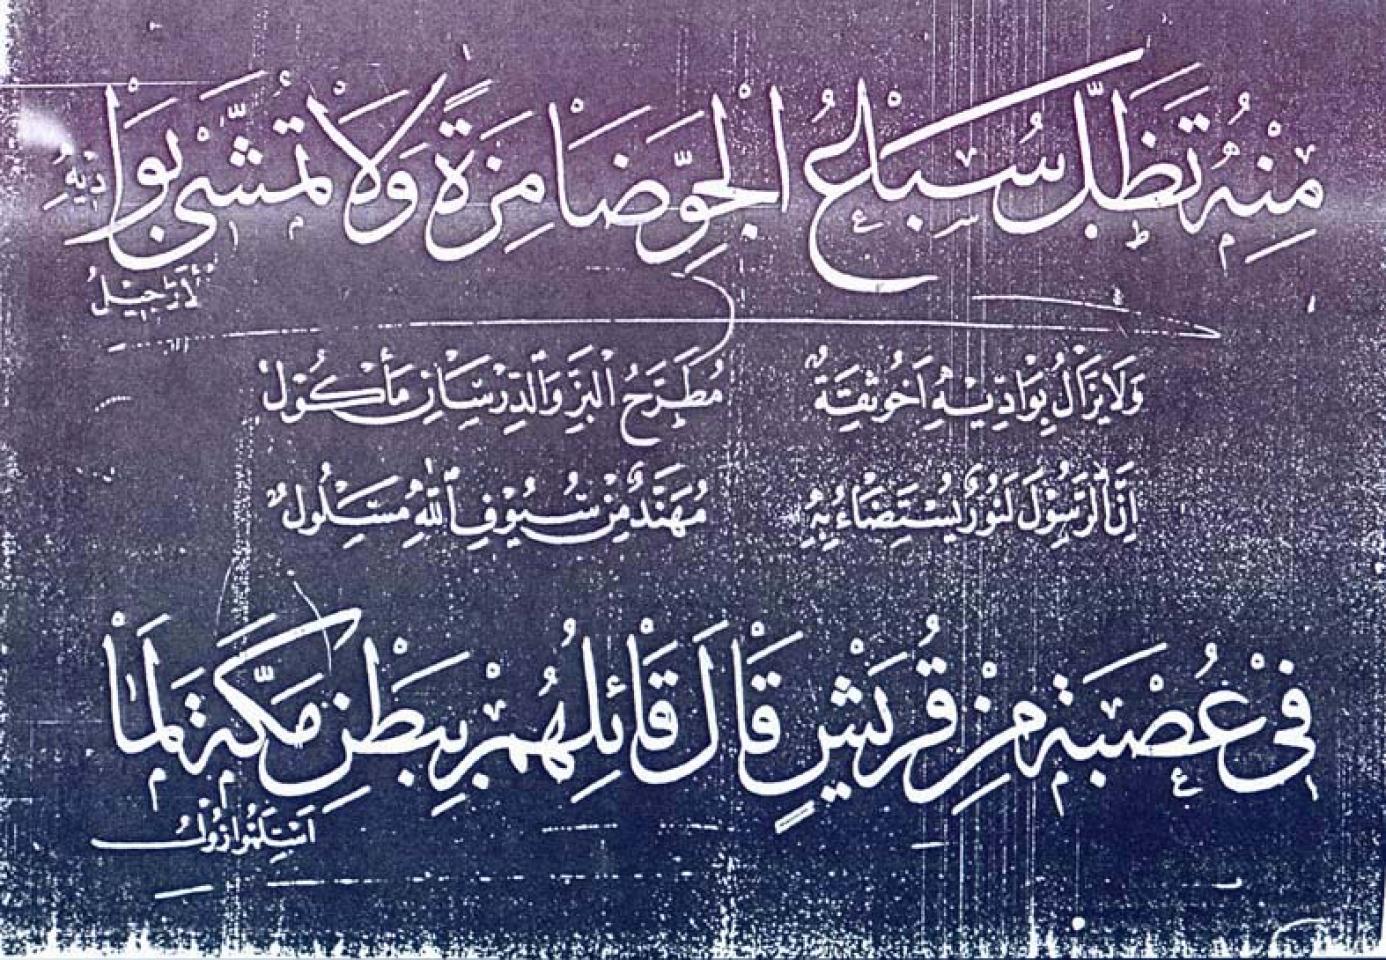 مِنْهُ تَظَلُّ سِبَاعُ الْجَوِّ ضَامِزَةً وَلَا تُمَشَّى بِوَادِيهِ
الْأَرَاجِيلُ
وَلَا يَزَالُ بِوَادِيهِ أَخُو ثِقَةٍ مُطَرَّحُ الْبَزِّ وَالدِّرْسَانِ مَأْكُولُ
إِنَّ الرَّسُولَ لَنُورٌ يُسْتَضَاءُ بِهِ مُهَنَّدٌ مِنْ سُيُوفِ اللَّهِ مَسْلُولُ
فِي عُصْبَةٍ مِنْ قُرَيْشٍ قَالَ قَائِلُهُمْ بِبَطْنِ مَكَّةَ لَمَّا
أَسْلَمُوا زُولُوا